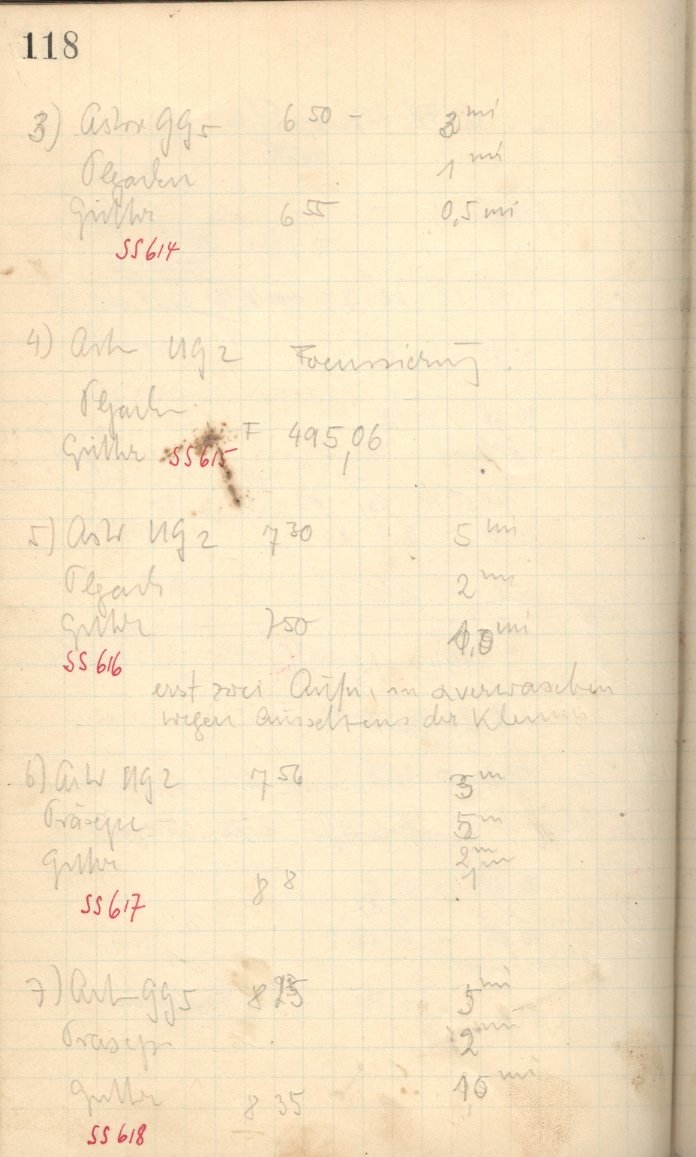 118
3) Astr GG5 6 50 - 3 mi
Plejaden 1 mi
Gitter 6 55 0,5 mi
SS614
4) Astr UG2 Focussierung.
Plejaden
Gitter F 495,06
SS615
5) Astr UG2 7 30 5 mi
Plejad 2 mi
Gitter 7 50 mi
SS616
erst zwei Aufn, verwaschen
wegen Aussetzens der Klemme
6) Astr UG2 7 56 m
Präsepe m
Gitter 2 m
1 m
8 8
SS617
7) Astr GG5 8 5 mi
Präsepe 2 mi
Gitter 8 35 mi
SS618